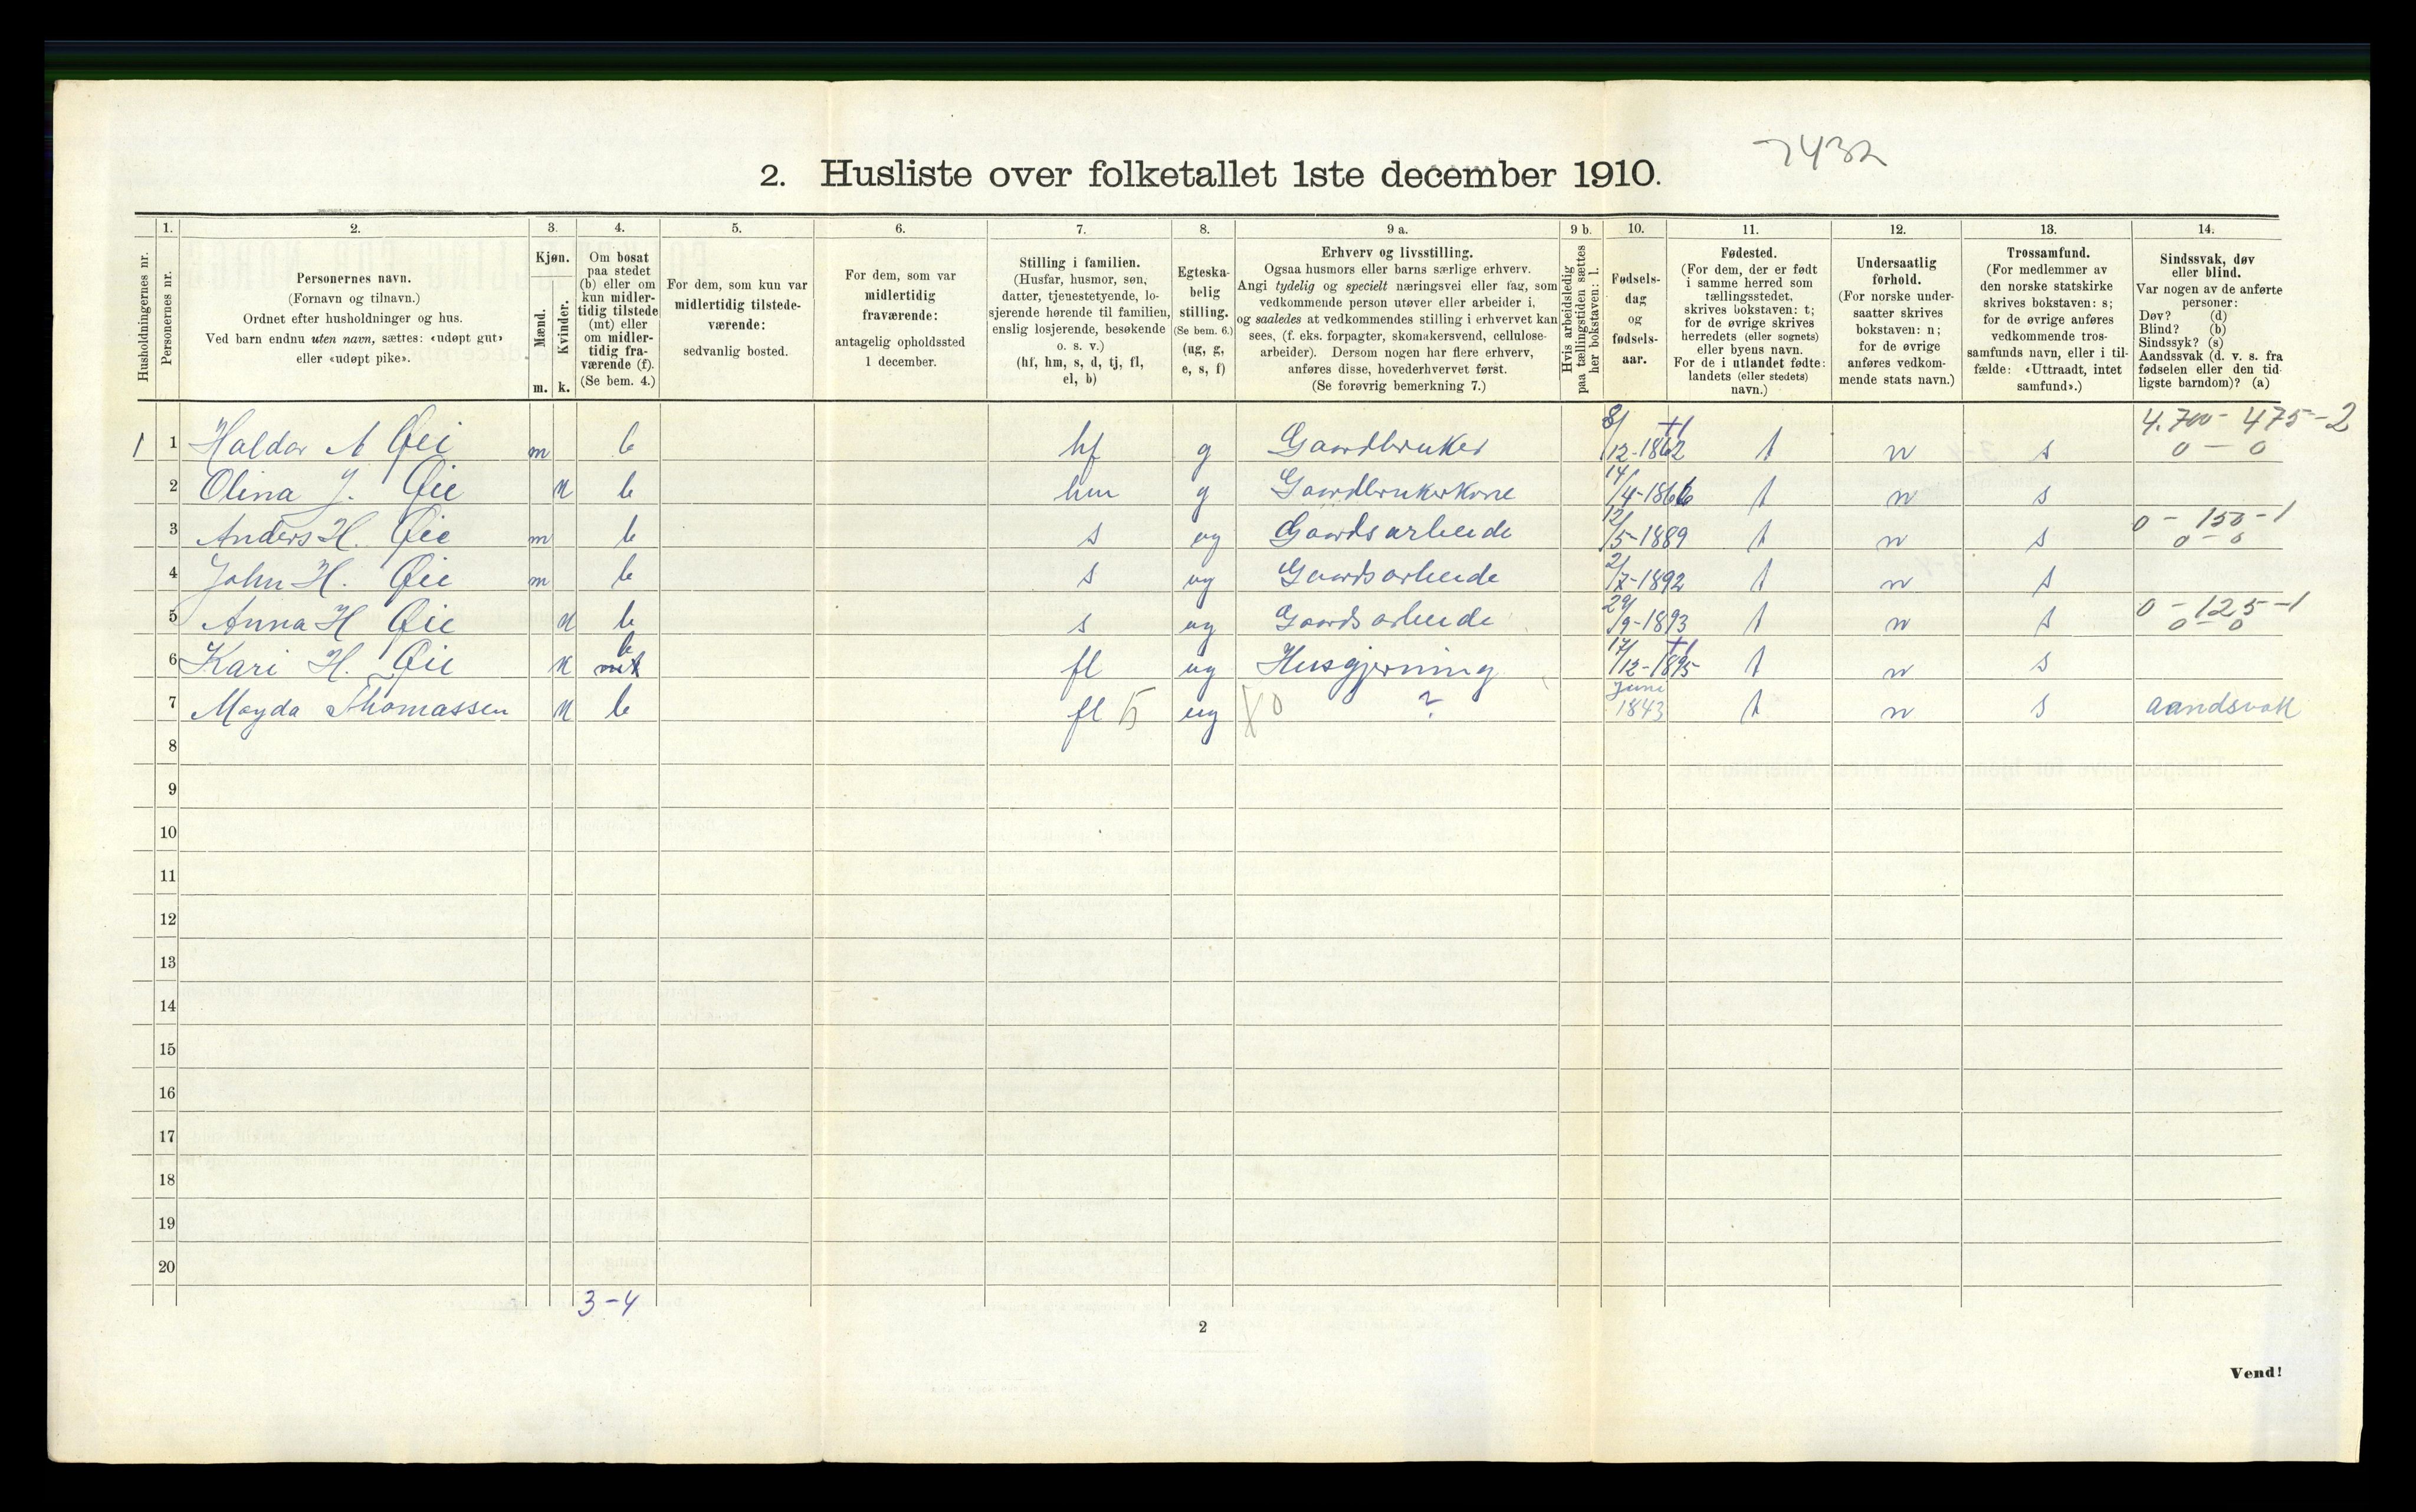 7432
2. Husliste over folketallet 1ste december 1910.
Husholdningernes nr.
1.
Personernes nr.
2.
Personernes navn.
(Fornavn og tilnavn.)
Ordnet efter husholdninger og hus.
Ved barn endnu uten navn, sættes: «udøpt gut»
eller «udøpt pike».
3.
Kjøn.
Mænd.
Kvinder.
m. k.
4.
Om bosat
paa stedet
(b) eller om
kun midler-
tidig tilstede
(mt) eller
om midler-
tidig fra-
værende (f).
(Se bem. 4.)
5.
For dem, som kun var
midlertidig tilstede-
værende:
sedvanlig bosted.
6.
For dem, som var
midlertidig
fraværende:
antagelig opholdssted
1 december.
7.
Stilling i familien.
(Husfar, husmor, søn,
datter, tjenestetyende, lo-
sjerende hørende til familien,
enslig losjerende, besøkende
o. s. v.)
(hf, hm, s, d, tj, fl,
el, b)
8.
Egteska-
belig
stilling.
(Se bem. 6.)
(ug, g,
e, s, f)
9 a.
Erhverv og livsstilling.
Ogsaa husmors eller barns særlige erhverv.
Angi tydelig og specielt næringsvei eller fag, som
vedkommende person utøver eller arbeider i,
og saaledes at vedkommendes stilling i erhvervet kan
sees, (f. eks. forpagter, skomakersvend, cellulose-
arbeider). Dersom nogen har flere erhverv,
anføres disse, hovederhvervet først.
(Se forøvrig bemerkning 7.)
9 b.
Hvis arbeidsledig
paa tællingstiden sættes
her bokstaven: l.
10.
Fødsels-
dag
og
fødsels-
aar.
11.
Fødested.
(For dem, der er født
i samme herred som
tællingsstedet,
skrives bokstaven: t;
for de øvrige skrives
herredets (eller sognets)
eller byens navn.
For de i utlandet fødte:
landets (eller stedets)
navn.)
12.
Undersaatlig
forhold.
(For norske under-
saatter skrives
bokstaven: n;
for de øvrige
anføres vedkom-
mende stats navn.)
13.
Trossamfund.
(For medlemmer av
den norske statskirke
skrives bokstaven: s;
for de øvrige anføres
vedkommende tros-
samfunds navn, eller i til-
fælde: «Uttraadt, intet
samfund».)
14.
Sindssvak, døv
eller blind.
Var nogen av de anførte
personer:
Døv? (d)
Blind? (b)
Sindssyk? (s)
Aandssvak (d. v. s. fra
fødselen eller den tid-
ligste barndom)? (a)
1 1 Haldor A Øie m b hf g Gaardbruker 8/12-1862 t n s 4.700 - 475 - 2
0 - 0
2 Olina J. Øie k b hm g Gaardbrukerkone 14/4-1866 t n s
3 Anders H. Øie m b s ug Gaardsarbeide 12/5-1889 t n s 0 - 150 - 1
0 - 0
4 John H. Øie m b s ug Gaardsarbeide 2/7-1892 t n s
5 Anna H Øie k b s ug Gaardsarbeide 29/9-1893 t n s 0 - 125 - 1
0 - 0
6 Kari H. Øie k b fl ug Husgjerning 17/12-1895 t n s
7 Magda Thomassen k b fl ug ? Juni 1843 t n s aandsvak
8
9
10
11
12
13
14
15
16
17
18
19
20
3-4
2
Vend!